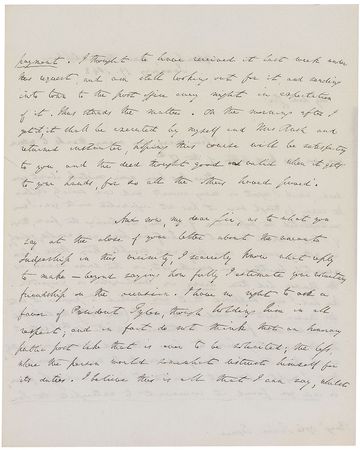 payment. I thought to have received it last week under
this request, and am still looking out for it and sending
into town to the post office every night in expectation
of it. Thus stands the matter. On the morning after I
get it, it shall be executed by myself and Mrs Rush and
returned instanter, hoping this course will be satisfactory
to you and the deed thought good and valid when it gets
to your hands, for so all the others I found.
And now, my dear Sir, as to what you
say at the close of your letter about the vacant
Judgeship in this vicinity, I scarcely know what reply
to make — beyond saying how fully I estimate your voluntary
friendship on the occasion. I have no right to ask a
favor of President Tyler, though holding him in all
respect; and in fact do not think that an honorary
public post like that is ever to be solicited; the less,
where the person would somewhat distrust himself for
its duties. I believe this is all that I can say, whilst